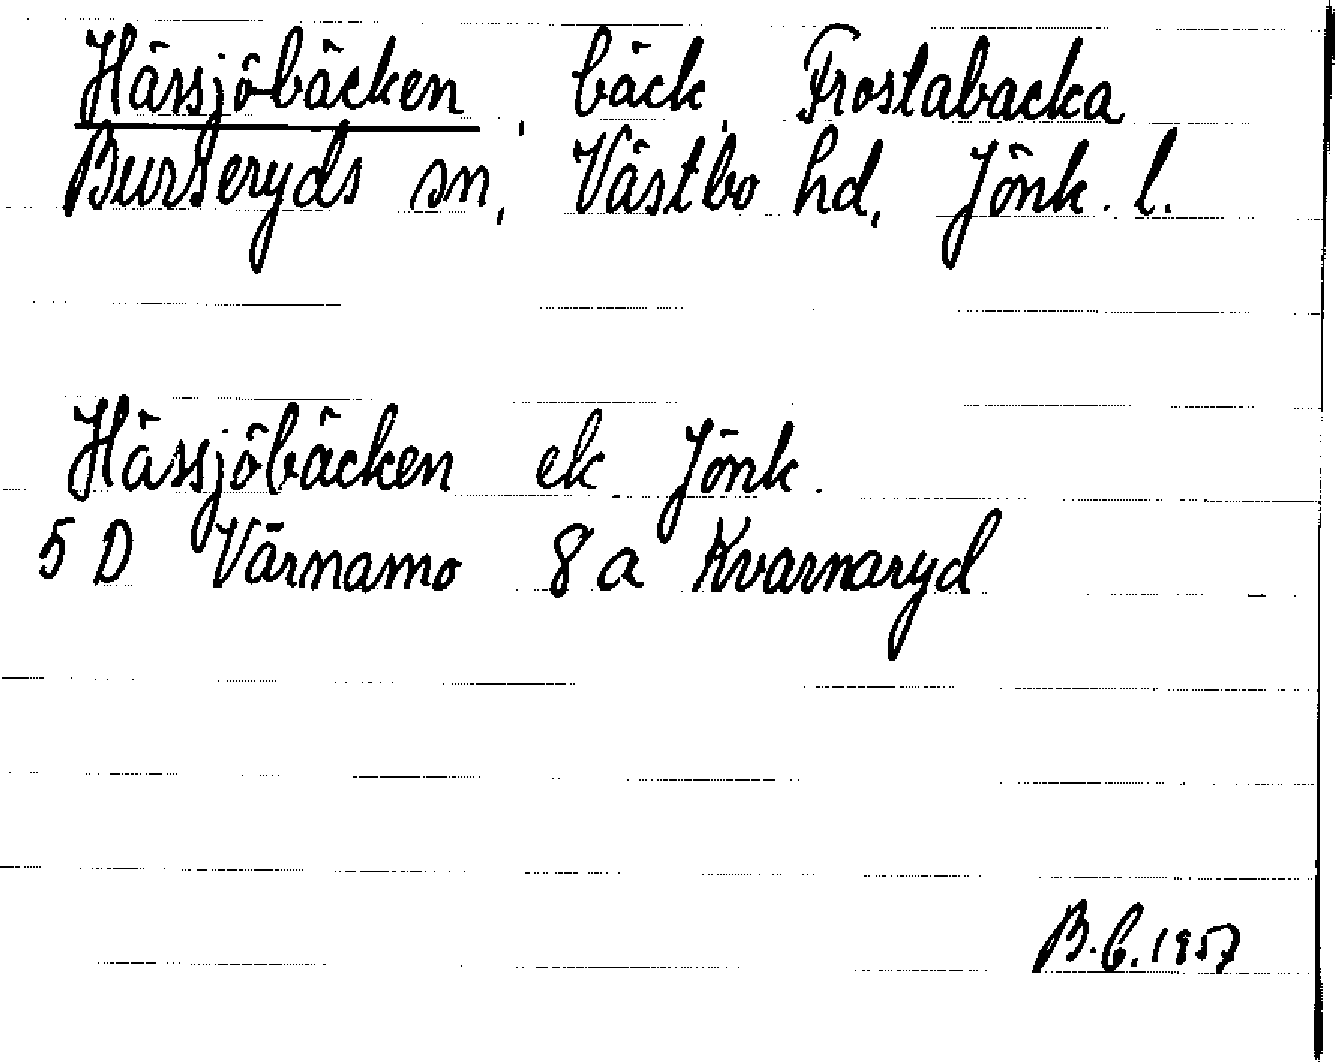 Hässjöbäcken, bäck, Frostabacka
Burseryds sn, Västbo hd, Jönk. l.
Hässjöbäcken ek Jönk.
5 D Värnamo 8 a Kvarnaryd
B.C. 1957